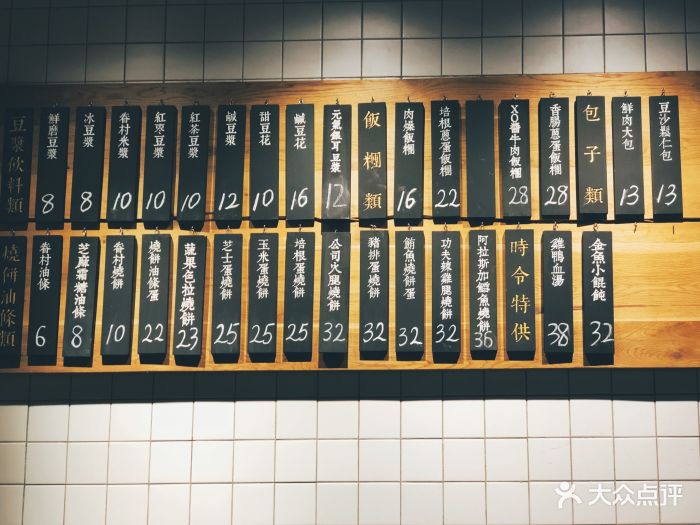 豆漿飲料類
鮮磨豆漿 8
冰豆漿 8
眷村米漿 10
紅棗豆漿 10
紅茶豆漿 10
鹹豆漿 12
甜豆花 10
鹹豆花 16
元氣銀耳豆漿 12
飯糰類
肉燥飯糰 16
培根蔥蛋飯糰 22
XO醬牛肉飯糰 28
香腸蔥蛋飯糰 28
包子類
鮮肉大包 13
豆沙鬆仁包 13
燒餅油條類
眷村油條 6
芝麻霜糖油條 8
眷村燒餅 10
燒餅油條蛋 22
蔬果色拉燒餅 23
芝士蛋燒餅 25
玉米蛋燒餅 25
培根蛋燒餅 25
公司火腿燒餅 32
豬排蛋燒餅 32
鮪魚燒餅蛋 32
功夫辣雞腿燒餅 32
阿拉斯加鱈魚燒餅 36
時令特供
雞鴨血湯 38
金魚小餛飩 32
大众点评